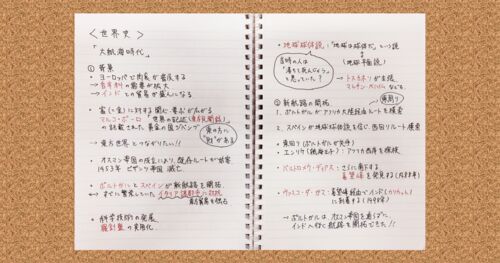 <世界史>
「大航海時代」
① 背景
・ヨーロッパで肉食が普及する
→香辛料の需要が拡大
→インドとの貿易が盛んになる
・富(=金)に対する関心・夢が広がる
マルコ・ポーロ 「世界の記述(東方見聞録)」
の記載された、黄金の国ジパング
東の方に"国"がある
→東方世界とつながりたい!!
・オスマン帝国の成立により、既存ルートが妨害
1453年 ビザンツ帝国 滅亡
・ポルトガルとスペインが新航路を開拓。
→すでに繁栄していたイタリア諸都市に対抗
東方貿易を独占
・科学技術の発展
羅針盤の実用化
・地球球体説:「地球は球体だ」という説
↕
(地球平面説)
当時の人は「海を下って死んじゃう」と思っていた?
→トスカネリが主張
マルチン・ベハイムなども。
② 新航路の開拓
東周り
1. ポルトガルがアフリカ大陸経由ルートを模索
2. スペインが地球球体説を信じ、西回りルートを模索
・東回り(ポルトガルが先手)
・エンリケ(航海王子):アフリカ西岸を探検
・バルトロメウ・ディアス:さらに南下する
喜望峰を発見する(1488年)
・ヴァスコ・ダ・ガマ:喜望峰経由でインド(カリカット)
に到着する(1498年)
→ポルトガルは、オスマン帝国を通らずに、
インドへ行く航路を開拓できた!!